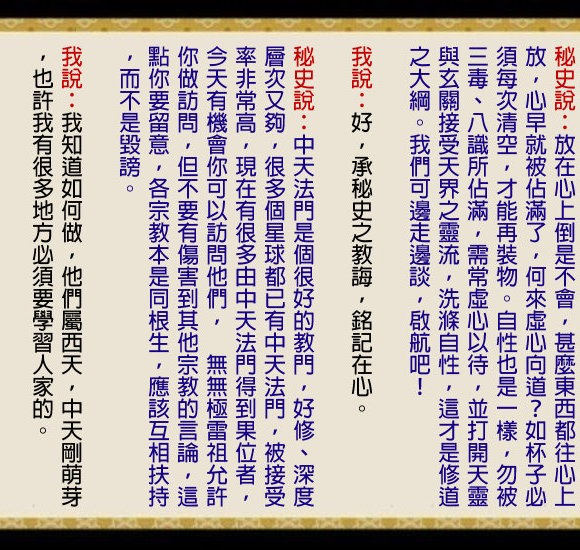 秘史說：放在心上倒是不會，甚麼東西都往心上
放，心早就被佔滿了，何來虛心向道？如杯子必
須每次清空，才能再裝物。自性也是一樣，勿被
三毒、八識所佔滿，需常虛心以待，並打開天靈
與玄關接受天界之靈流，洗滌自性，這才是修道
之大綱。我們可邊走邊談，啟航吧！
我說：好，承秘史之教誨，銘記在心。
秘史說：中天法門是個很好的教門，好修、深度
層次又夠，很多個星球都已有中天法門，被接受
率非常高，現在有很多由中天法門得到果位者，
今天有機會你可以訪問他們， 無無極雷祖允許
你做訪問，但不要有傷害到其他宗教的言論，這
點你要留意，各宗教本是同根生，應該互相扶持
，而不是毀謗。
我說：我知道如何做，他們屬西天，中天剛萌芽
，也許我有很多地方必須要學習人家的。